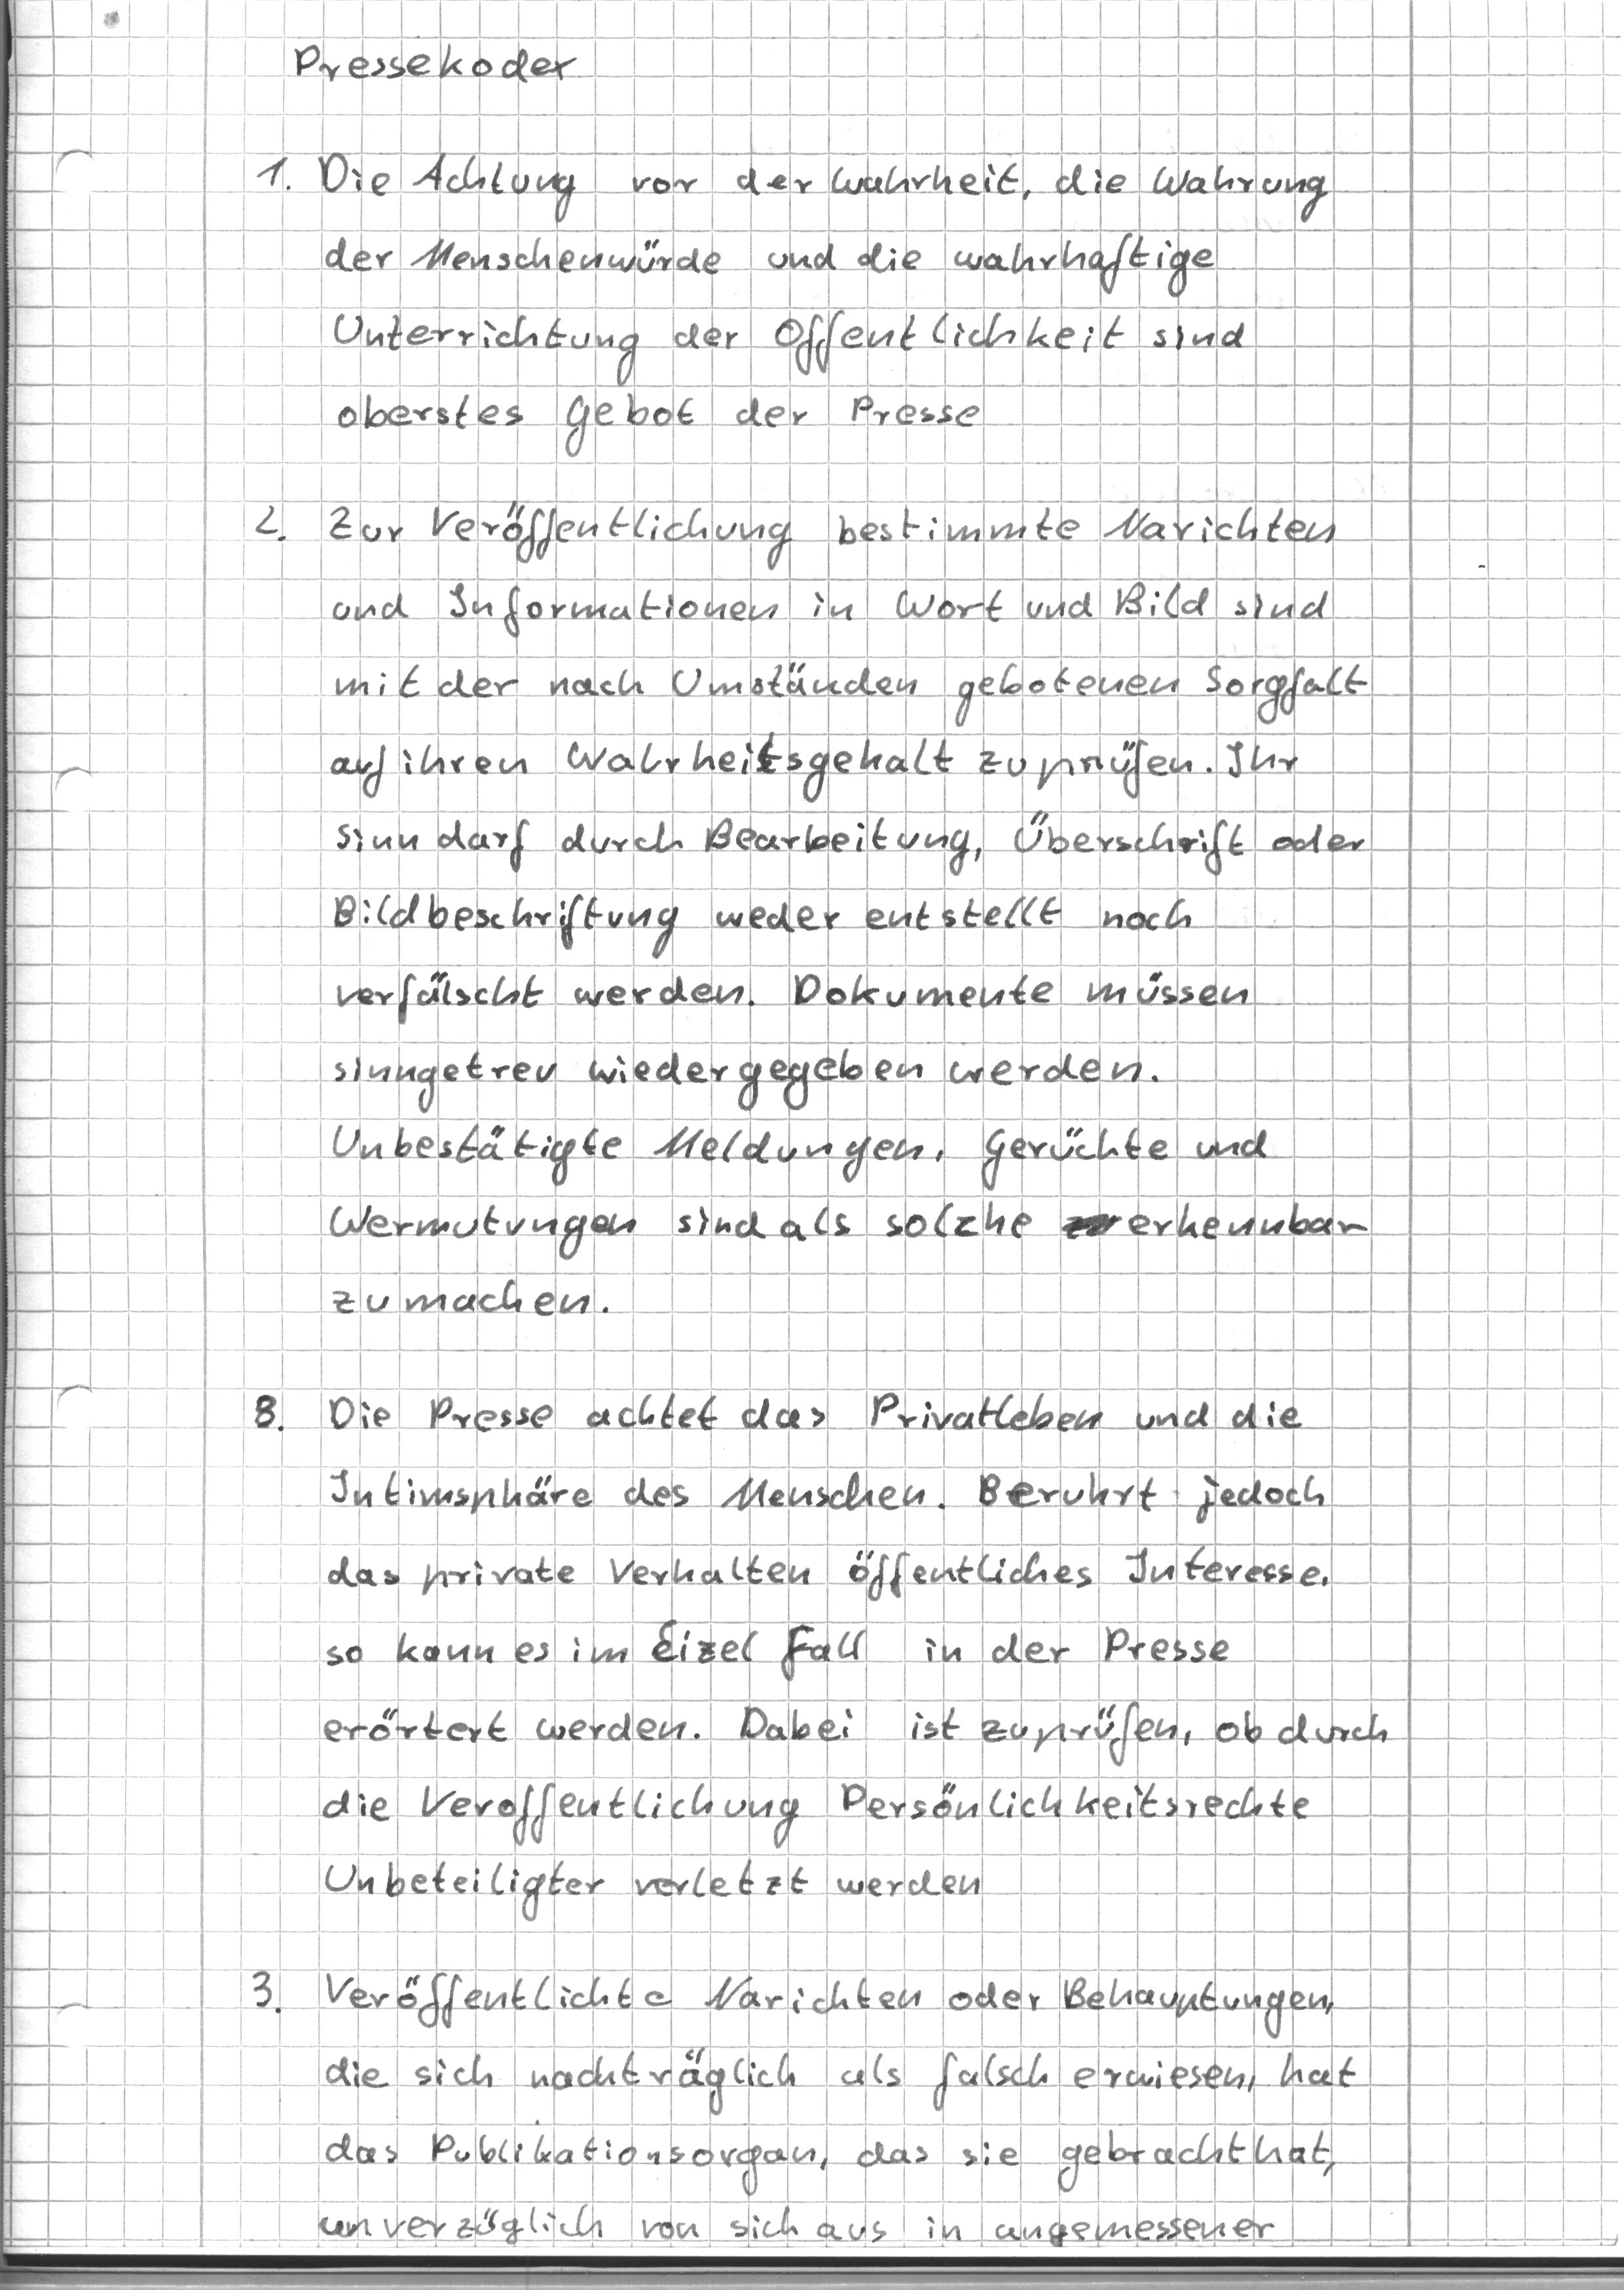 Pressekodex
1. Die Achtung vor der Wahrheit, die Wahrung
der Menschenwürde und die wahrhaftige
Unterrichtung der Offentlichkeit sind
oberstes Gebot der Presse
2. Zur Veröffentlichung bestimmte Narichten
und Informationen in Wort und Bild sind
mit der nach Umständen gebotenen Sorgfalt
auf ihren Wahrheitsgehalt zu prüfen. Ihr
Sinn darf durch Bearbeitung, Überschrift oder
Bildbeschriftung weder entstellt noch
verfälscht werden. Dokumente müssen
sinngetreu wiedergegeben werden.
Unbestätigte Meldungen, Gerüchte und
Wermutungen sind als solche erkennbar
zu machen.
8. Die Presse achtet das Privatleben und die
Intimsphäre des Menschen. Beruhrt jedoch
das private Verhalten öffentliches Interesse,
so kann es im Eizel Fall in der Presse
erörtert werden. Dabei ist zu prüfen, ob durch
die Veroffentlichung Persönlichkeitsrechte
Unbeteiligter verletzt werden
3. Veröffentlichte Narichten oder Behauptungen,
die sich nachträglich als falsch erwiesen, hat
das Publikationsorgan, das sie gebracht hat,
unverzüglich von sich aus in angemessener